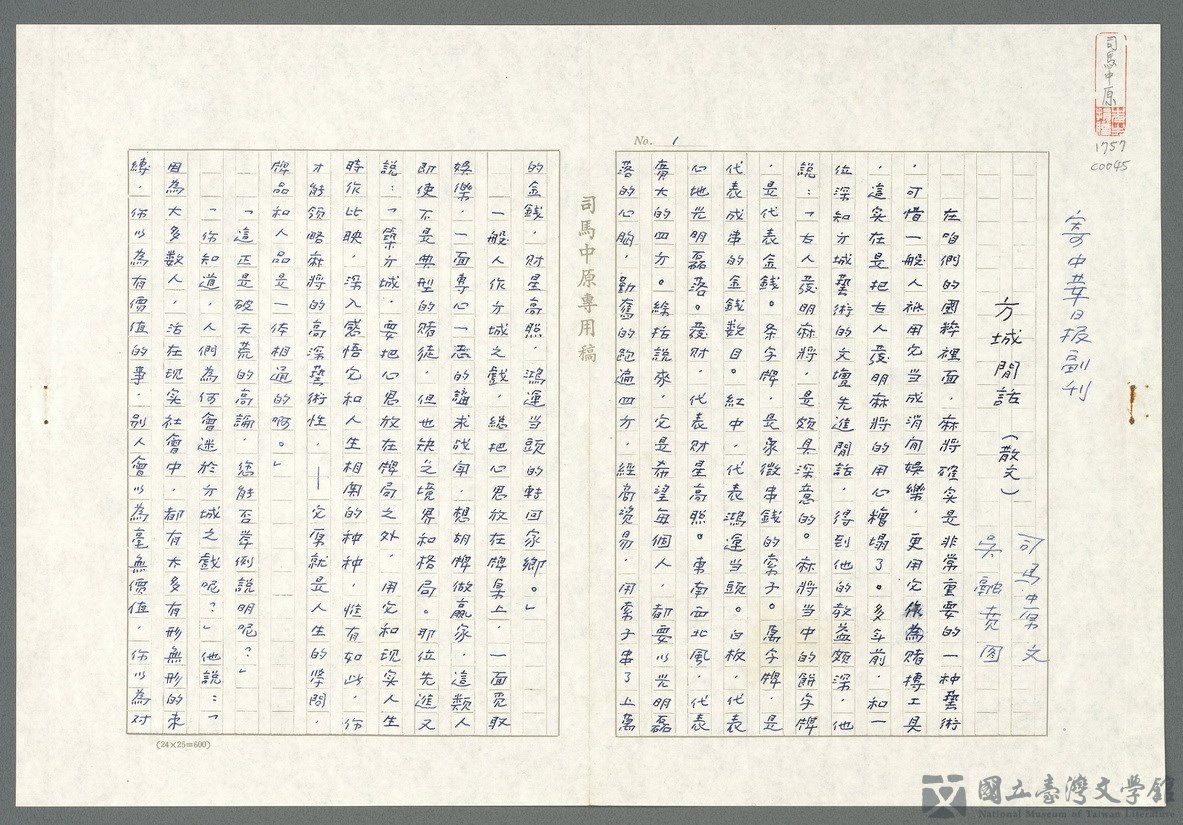 司馬中原
1757
C0045
寄中華日報副刊
No. 1
司馬中原 文
吳融賁 圖
方城閒話 (散文)
在咱們的國粹裡面,麻將確實是非常重要的一种藝術
,可惜一般人祇用它当成消閒娛樂,更用它作為賭博工具
,這实在是把古人發明麻將的用心糟塌了。多年前,和一
位深知方城藝術的文壇先進閒話,得到他的教益頗深,他
說:「古人發明麻將,是頗具深意的。麻將当中的餅字牌
,是代表金錢。条字牌,是象徵串錢的索子。萬字牌,是
代表成串的金錢数目。紅中,代表鴻運当頭。白板,代表
心地光明磊落。發財,代表財星高照。東南西北風,代表
廣大的四方。綜括說來,它是希望每個人,都要以光明磊
落的心胸,勤奮的跑遍四方,經商資易,用索子串了上萬
司馬中原專用稿
的金錢,財星高照,鴻運当頭的轉回家鄉。」
一般人作方城之戲,總把心思放在牌桌上,一面覓取
娛樂,一面專心一志的講求战術,想胡牌做贏家,這類人
即使不是典型的賭徒,但也缺乏境界和格局。那位先進又
說:「築方城,要把心思放在牌局之外,用它和現实人生
時作比映,深入感悟它和人生相関的种种,惟有如此,你
才能領略麻將的高深藝術性,—它原就是人生的學問,
牌品和人品是一体相通的啊。」
「這正是破天荒的高論,您能否举例說明呢?」
「你知道,人們為何會迷於方城之戲呢?」他說:「
因為大多数人,活在現实社會中,都有太多有形無形的束
縛,你以為有價值的事,別人會以為毫無價值,你以為对
(24×25=600)
國立臺灣文學館
National Museum of Taiwan Literature